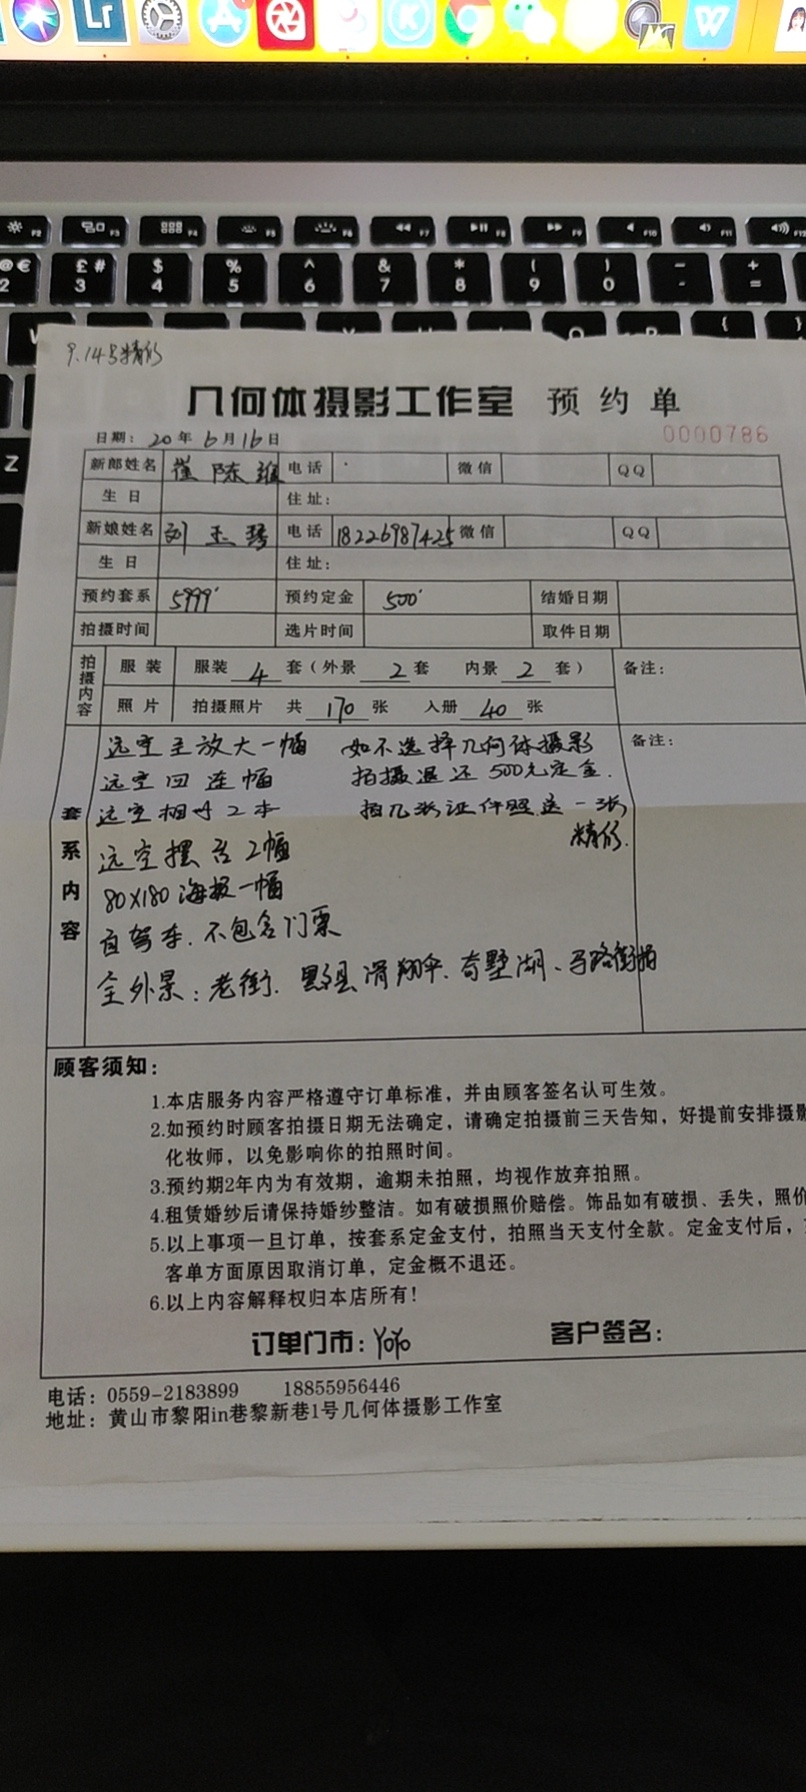 Lr
W
F2 F3 F4 F5 F6 F7 F8 F9 F10 F11 F12
@ € £ # $ % ^ & * ( ) - +
2 3 4 5 6 7 8 9 0 - =
{ }
Z
9.14号精修
几何体摄影工作室 预约单
日期: 20年6月16日
0000786
新郎姓名 崔陈维 电话 微信 QQ
生日 住址:
新娘姓名 刘玉琴 电话 18226987425 微信 QQ
生日 住址:
预约套系 5999 预约定金 500 结婚日期
拍摄时间 选片时间 取件日期
拍摄内容 服装 服装 4 套(外景 2 套 内景 2 套) 备注:
照片 拍摄照片 共 170 张 入册 40 张
套系内容 备注:
远空主放大一幅 如不选择几何体摄影
远空四连幅 拍摄退还500元定金.
远空相册2本 拍几张证件照送一张
精修.
远空摆台2幅
80X180海报一幅
自驾车.不包含门票
全外景:老街.黟县滑翔伞.奇墅湖、马路街拍
顾客须知:
1.本店服务内容严格遵守订单标准，并由顾客签名认可生效。
2.如预约时顾客拍摄日期无法确定，请确定拍摄前三天告知，好提前安排摄影
化妆师，以免影响你的拍照时间。
3.预约期2年内为有效期，逾期未拍照，均视作放弃拍照。
4.租赁婚纱后请保持婚纱整洁。如有破损照价赔偿。饰品如有破损、丢失，照价
5.以上事项一旦订单，按套系定金支付，拍照当天支付全款。定金支付后，
客单方面原因取消订单，定金概不退还。
6.以上内容解释权归本店所有!
订单门市: yoyo 客户签名:
电话: 0559-2183899 18855956446
地址: 黄山市黎阳in巷黎新巷1号几何体摄影工作室